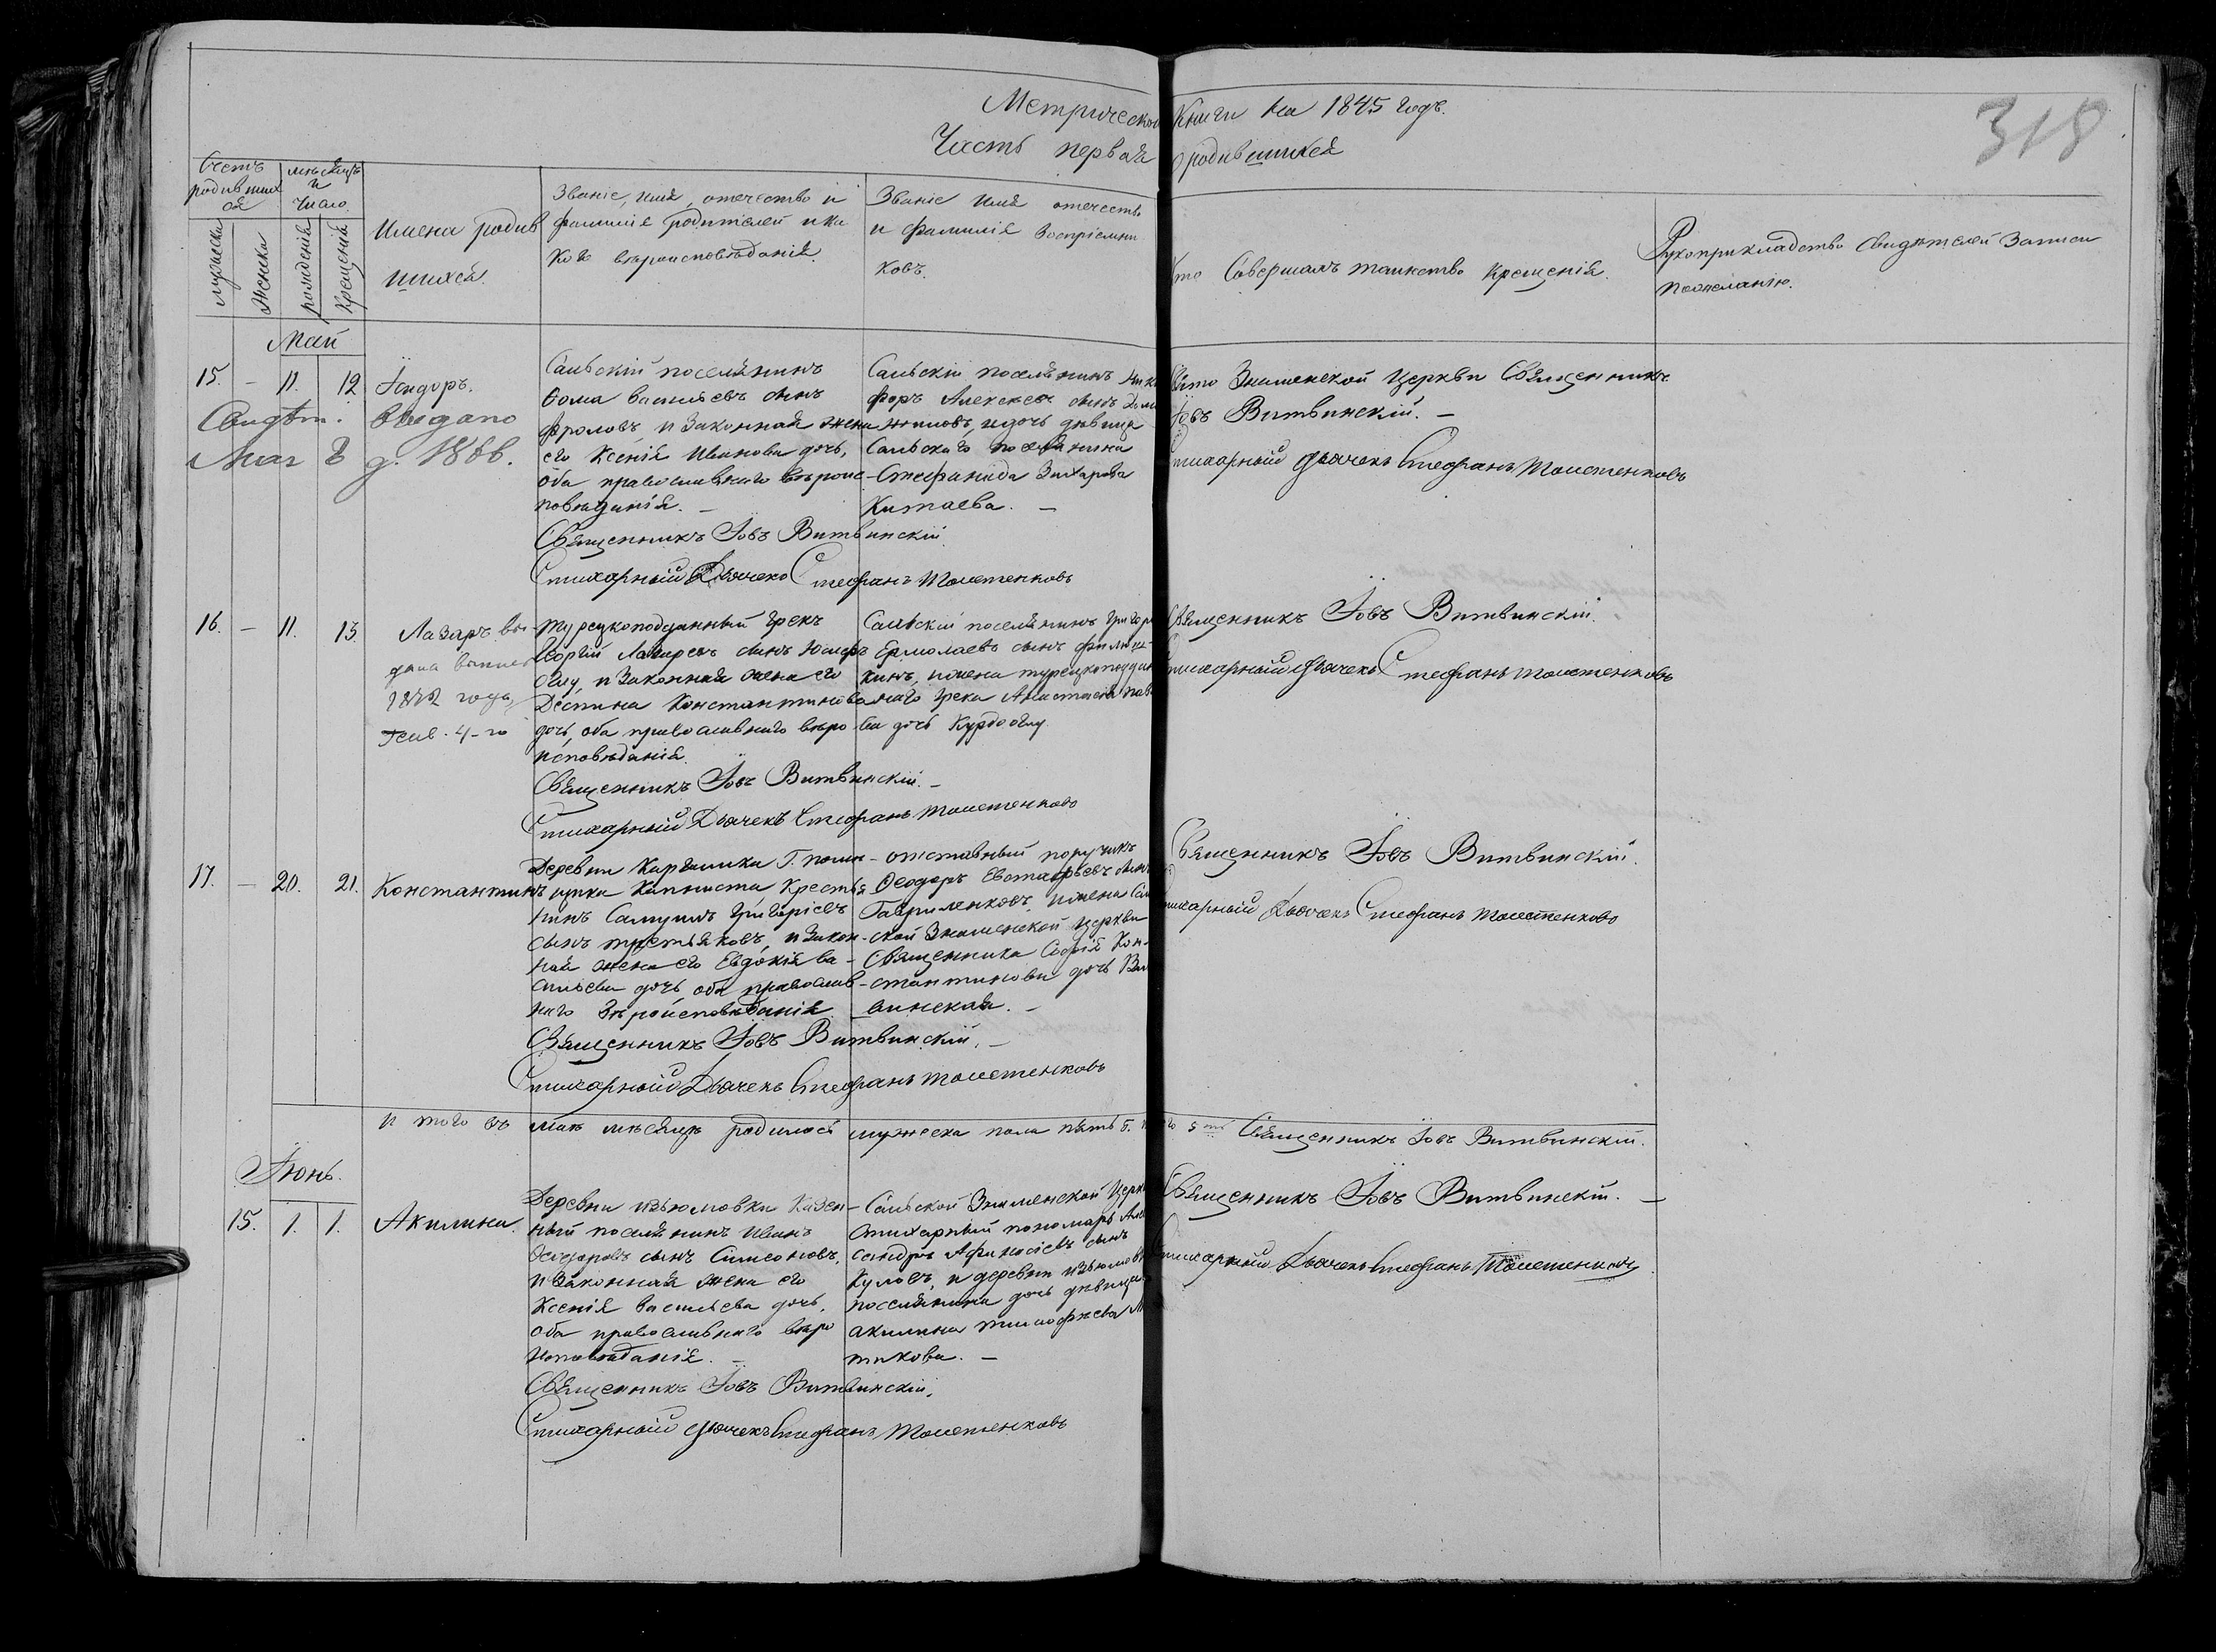 Метрической Книги на 1845 годъ.
Часть первая о родившихся
318
Счетъ родившихся
мѣсяцъ и число.
мужеска
женска
рожденія
крещенія
Имена родившихся.
Званіе, имя, отечество и
фамилія родителей и ка
кого вѣроисповѣданія.
Званіе имя отечество
и фамилія воспріемни
ковъ.
Кто совершалъ таинство крещенія.
Рукоприкладство свидѣтелей записи
по желанію.
Май
15. - 11. 12 Ісидоръ.
Свидѣт. выдано
Мая 8 д. 1866.
Сальскій поселянинъ
Фома Васильевъ сынъ
Фроловъ, и законная жена
его Ксенія Иванова дочь,
оба православнаго вѣроис-
повѣданія. -
Священникъ Іовъ Витвинскій
Стихарный Дьячекъ Стефанъ
Сальскій поселянинъ Ники
форъ Алексѣевъ сынъ
и дочь дѣвица
Сальскаго поселянина
Стефанида Захарова
Китаева. -
Знаменской Церкви Священникъ
Іовъ Витвинскій. -
Стихарный Дьячекъ Стефанъ
16. - 11. 13. Лазарь.
1872 года,
Генв. 4-го
Турецкоподданный Грекъ
Георгій Лазаревъ сынъ
оглу, и законная жена его
Деспина Константинова
дочь, оба православнаго вѣро
исповѣданія.
Священникъ Іовъ Витвинскій. -
Стихарный Дьячекъ Стефанъ
Сальскій поселянинъ Григорій
Ермолаевъ сынъ
кинъ, и жена турецкоподдан
наго Грека Анастасія Пав
ва дочь Курдооглу.
Священникъ Іовъ Витвинскій.
Стихарный Дьячекъ Стефанъ
17. - 20. 21. Константинъ
Деревни Г. помѣ-
щика Капниста Крестья
нинъ Самуилъ Григорьевъ
сынъ Третьяковъ, и закон-
ная жена его Евдокія Ва-
сильева дочь, оба православ-
наго вѣроисповѣданія.
Священникъ Іовъ Витвинскій. -
Стихарный Дьячекъ Стефанъ
отставный поручикъ
Ѳеодоръ Евстафьевъ сынъ
Гавриленковъ, и жена Саль
ской Знаменской Церкви
Священника Софія Кон-
стантинова дочь Вит
винская. -
Священникъ Іовъ Витвинскій.
Стихарный Дьячекъ Стефанъ
И того въ маѣ мѣсяцѣ родилось мужеска пола пять 5. Священникъ Іовъ Витвинскій.
Іюнь.
15. 1. 1. Акилина.
Деревни Изюмовки Казен-
ный поселянинъ Иванъ
Ѳеодоровъ сынъ Симеоновъ,
и законная жена его
Ксенія Васильева дочь,
оба православнаго вѣро
исповѣданія. -
Священникъ Іовъ Витвинскій.
Стихарный Дьячекъ Стефанъ
Сальской Знаменской Церкви
стихарный пономарь Алек
сандръ Афанасіевъ сынъ
Куловъ, и деревни Изюмовки
поселянина дочь дѣвица
Акилина Тимофѣева
тикова. -
Священникъ Іовъ Витвинскій. -
Стихарный Дьячекъ Стефанъ